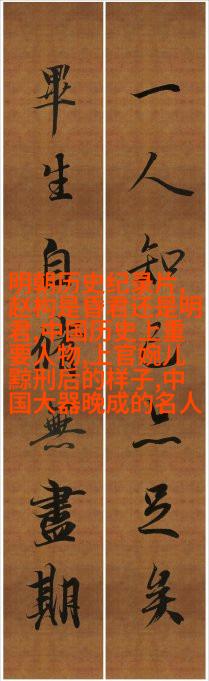 一人知己亦足矣
畢生自脩無盡期
明朝历史纪录片,
赵构是昏君还是明
君,中国历史上重
要人物,上官婉儿
黥刑后的样子,中
国大器晚成的名人